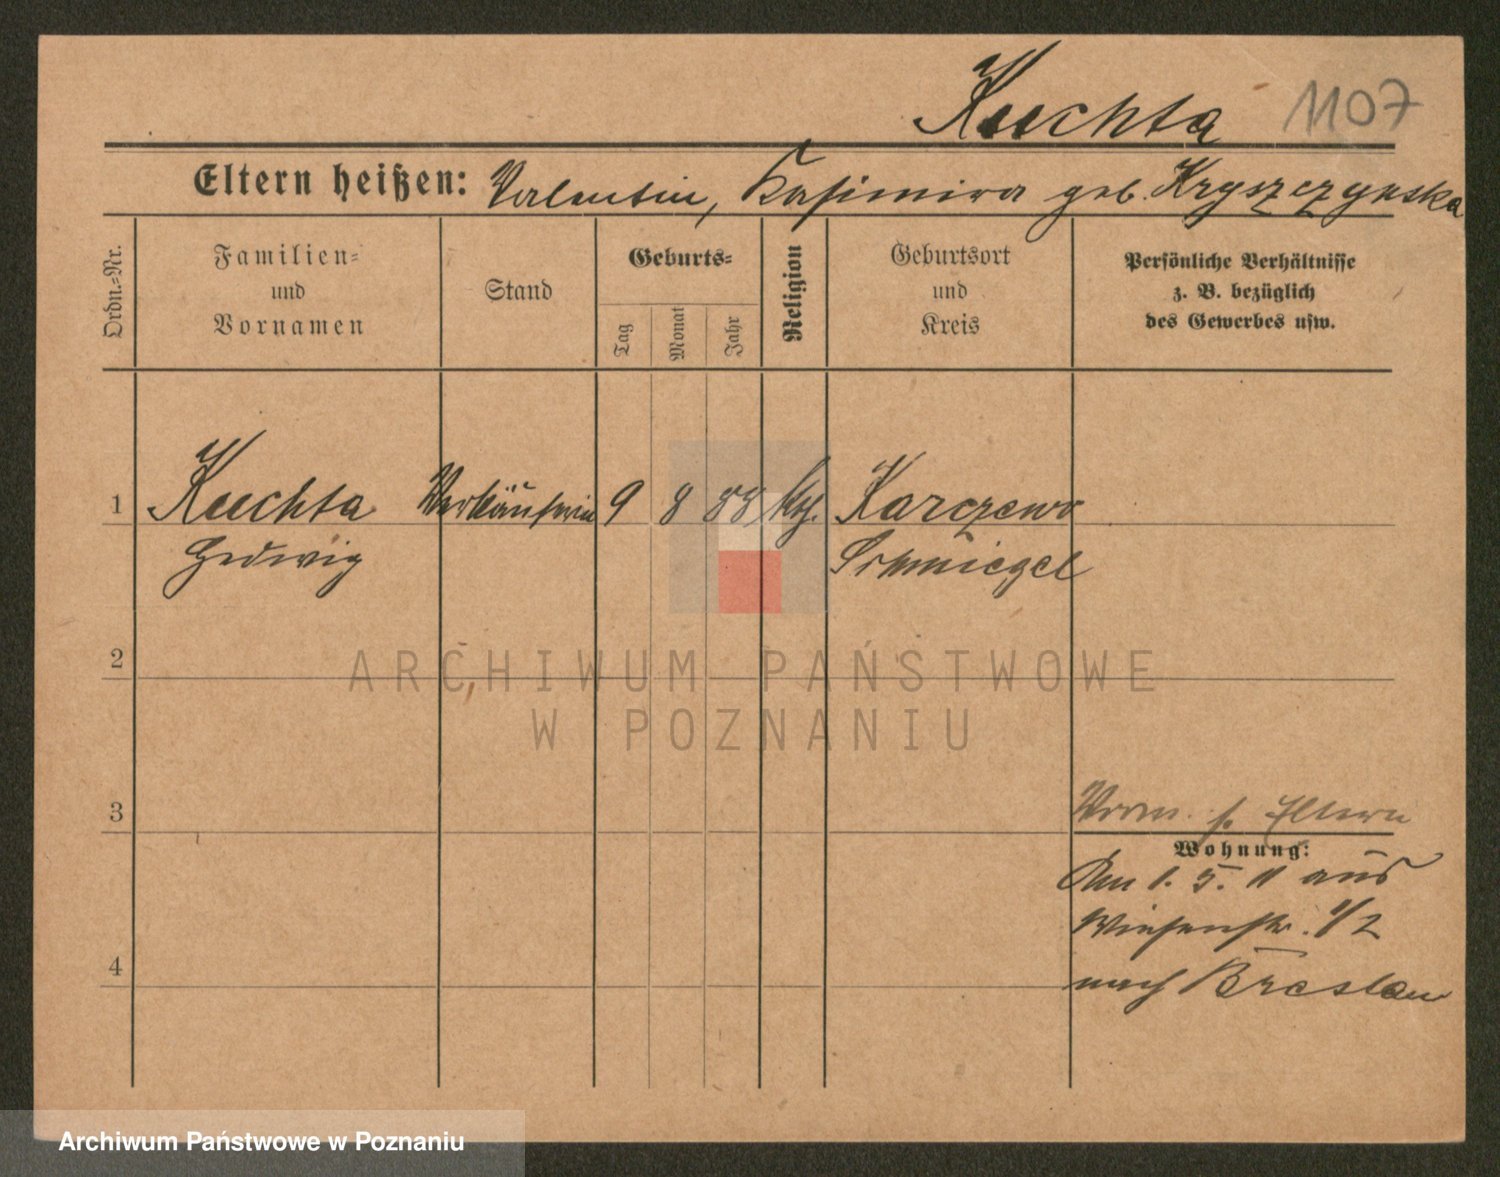 Kuchta 1107
Eltern heißen: Valentin, Kasimira geb. Kryszczynska
Ordn.-Nr.
Familien-
und
Vornamen
Stand
Geburts-
Tag
Monat
Jahr
Religion
Geburtsort
und
Kreis
Persönliche Verhältnisse
z. B. bezüglich
des Gewerbes usw.
1 Kuchta Verkäuferin 9 8 88 kth. Karczewo
Hedwig Schmiegel
ARCHIWUM PAŃSTWOWE
W POZNANIU
2
3
Eltern
Wohnung:
Am 1. 5. 11 aus
Wiesenstr. 1/2
4
nach Breslau
Archiwum Państwowe w Poznaniu